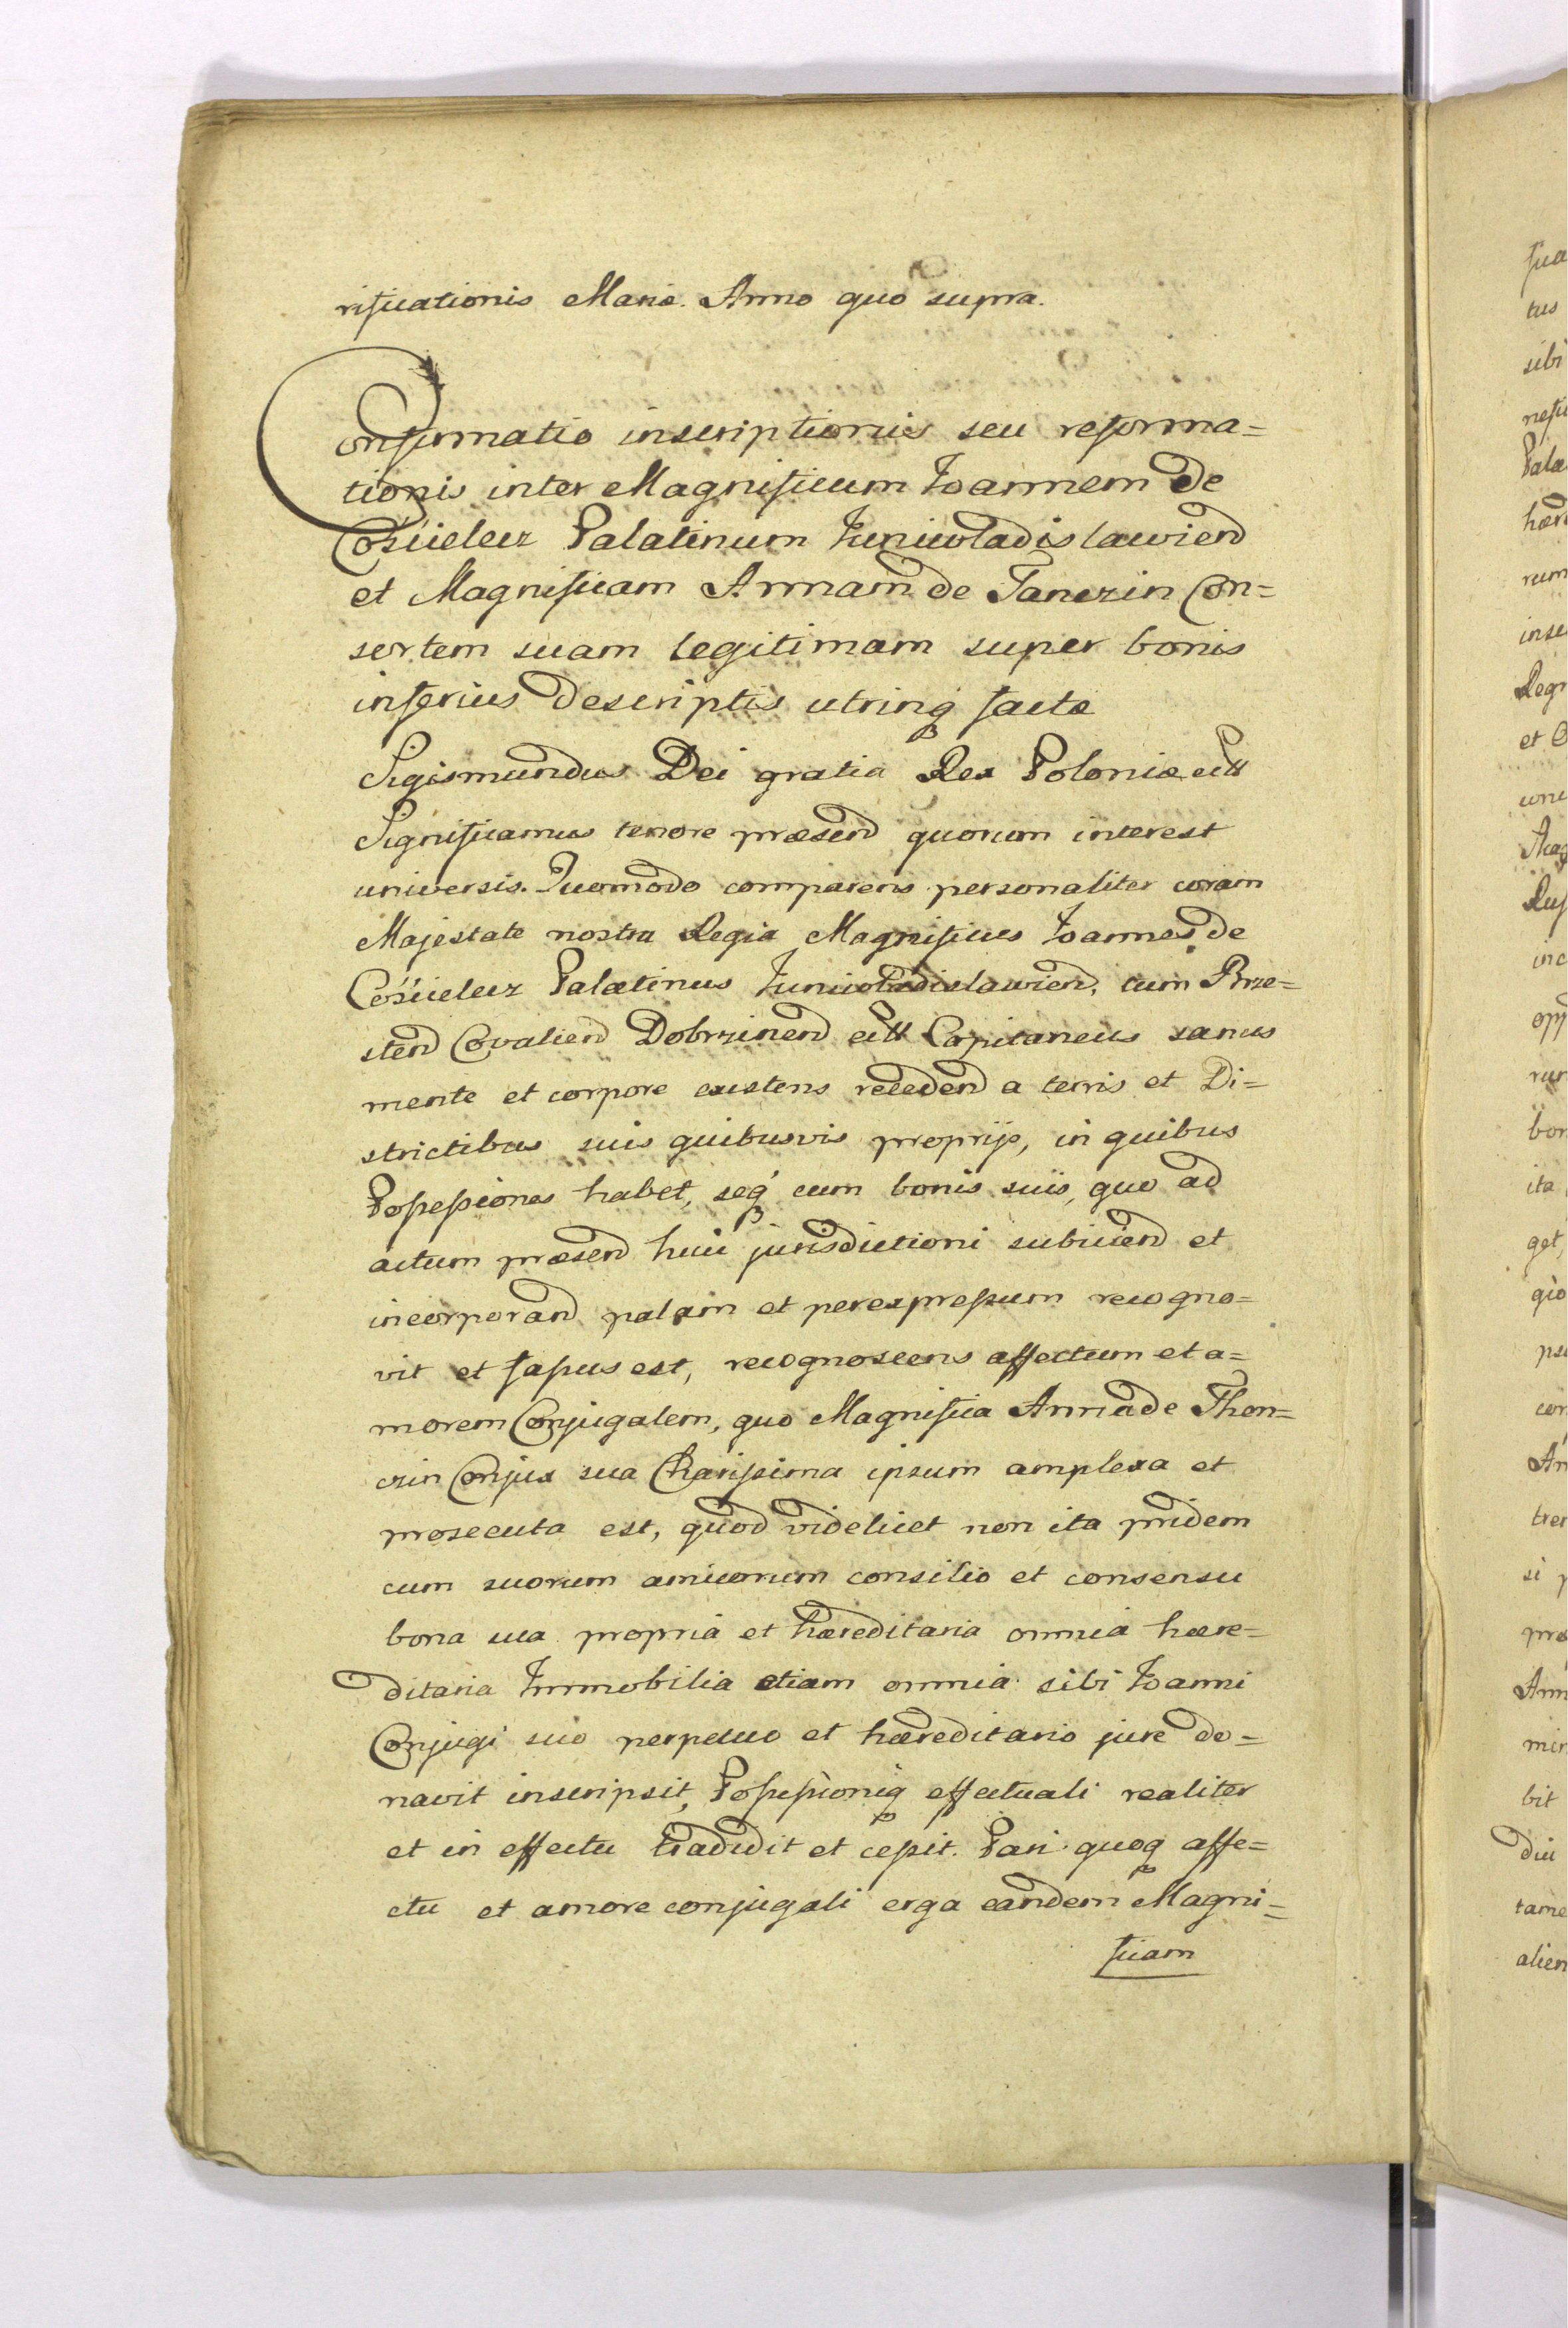 rificationis Mariæ. Anno quo supra.
Confirmatio inscriptionis seu reforma=
tionis inter Magnificum Joannem de
Cościelecz Palatinum Juniwladislawiend
et Magnificam Annam de Tanczin Con=
sortem suam legitimam super bonis
inferius descriptis utrinq factæ
Sigismundus Dei gratia Rex Poloniæ ettt
Significamus tenore præsend quorum interest
universis. Quomodo comparens personaliter coram
Majestate nostra Regia Magnificus Joannes de
Cościelecz Palatinus Juniwladislawiend, cum Brze=
stend Covaliend Dobrzinend ettt Capitaneus sanus
mente et corpore existens recedend a terris et Di=
strictibus suis quibusvis proprijs, in quibus
Possessiones habet, seq cum bonis suis, quo ad
actum præsend huic jurisdictioni subiiciend et
incorporand palam et perexpressum recogno=
vit et fassus est, recognoscens affectum et a=
morem Conjugalem, quo Magnifica Anna de Than=
czin Conjux sua Charissima ipsum amplexa et
prosecuta est, quod videlicet non ita pridem
cum suorum amicorum consilio et consensu
bona sua propria et hæreditaria omnia hære=
ditaria Immobilia etiam omnia sibi Joanni
Conjugi suo perpetuo et hæreditario jure do=
navit inscripsit, Possessioniq effectuali realiter
et in effectu tradidit et cessit. Pari quoq affe=
ctu et amore conjugali erga eandem Magni=
ficam